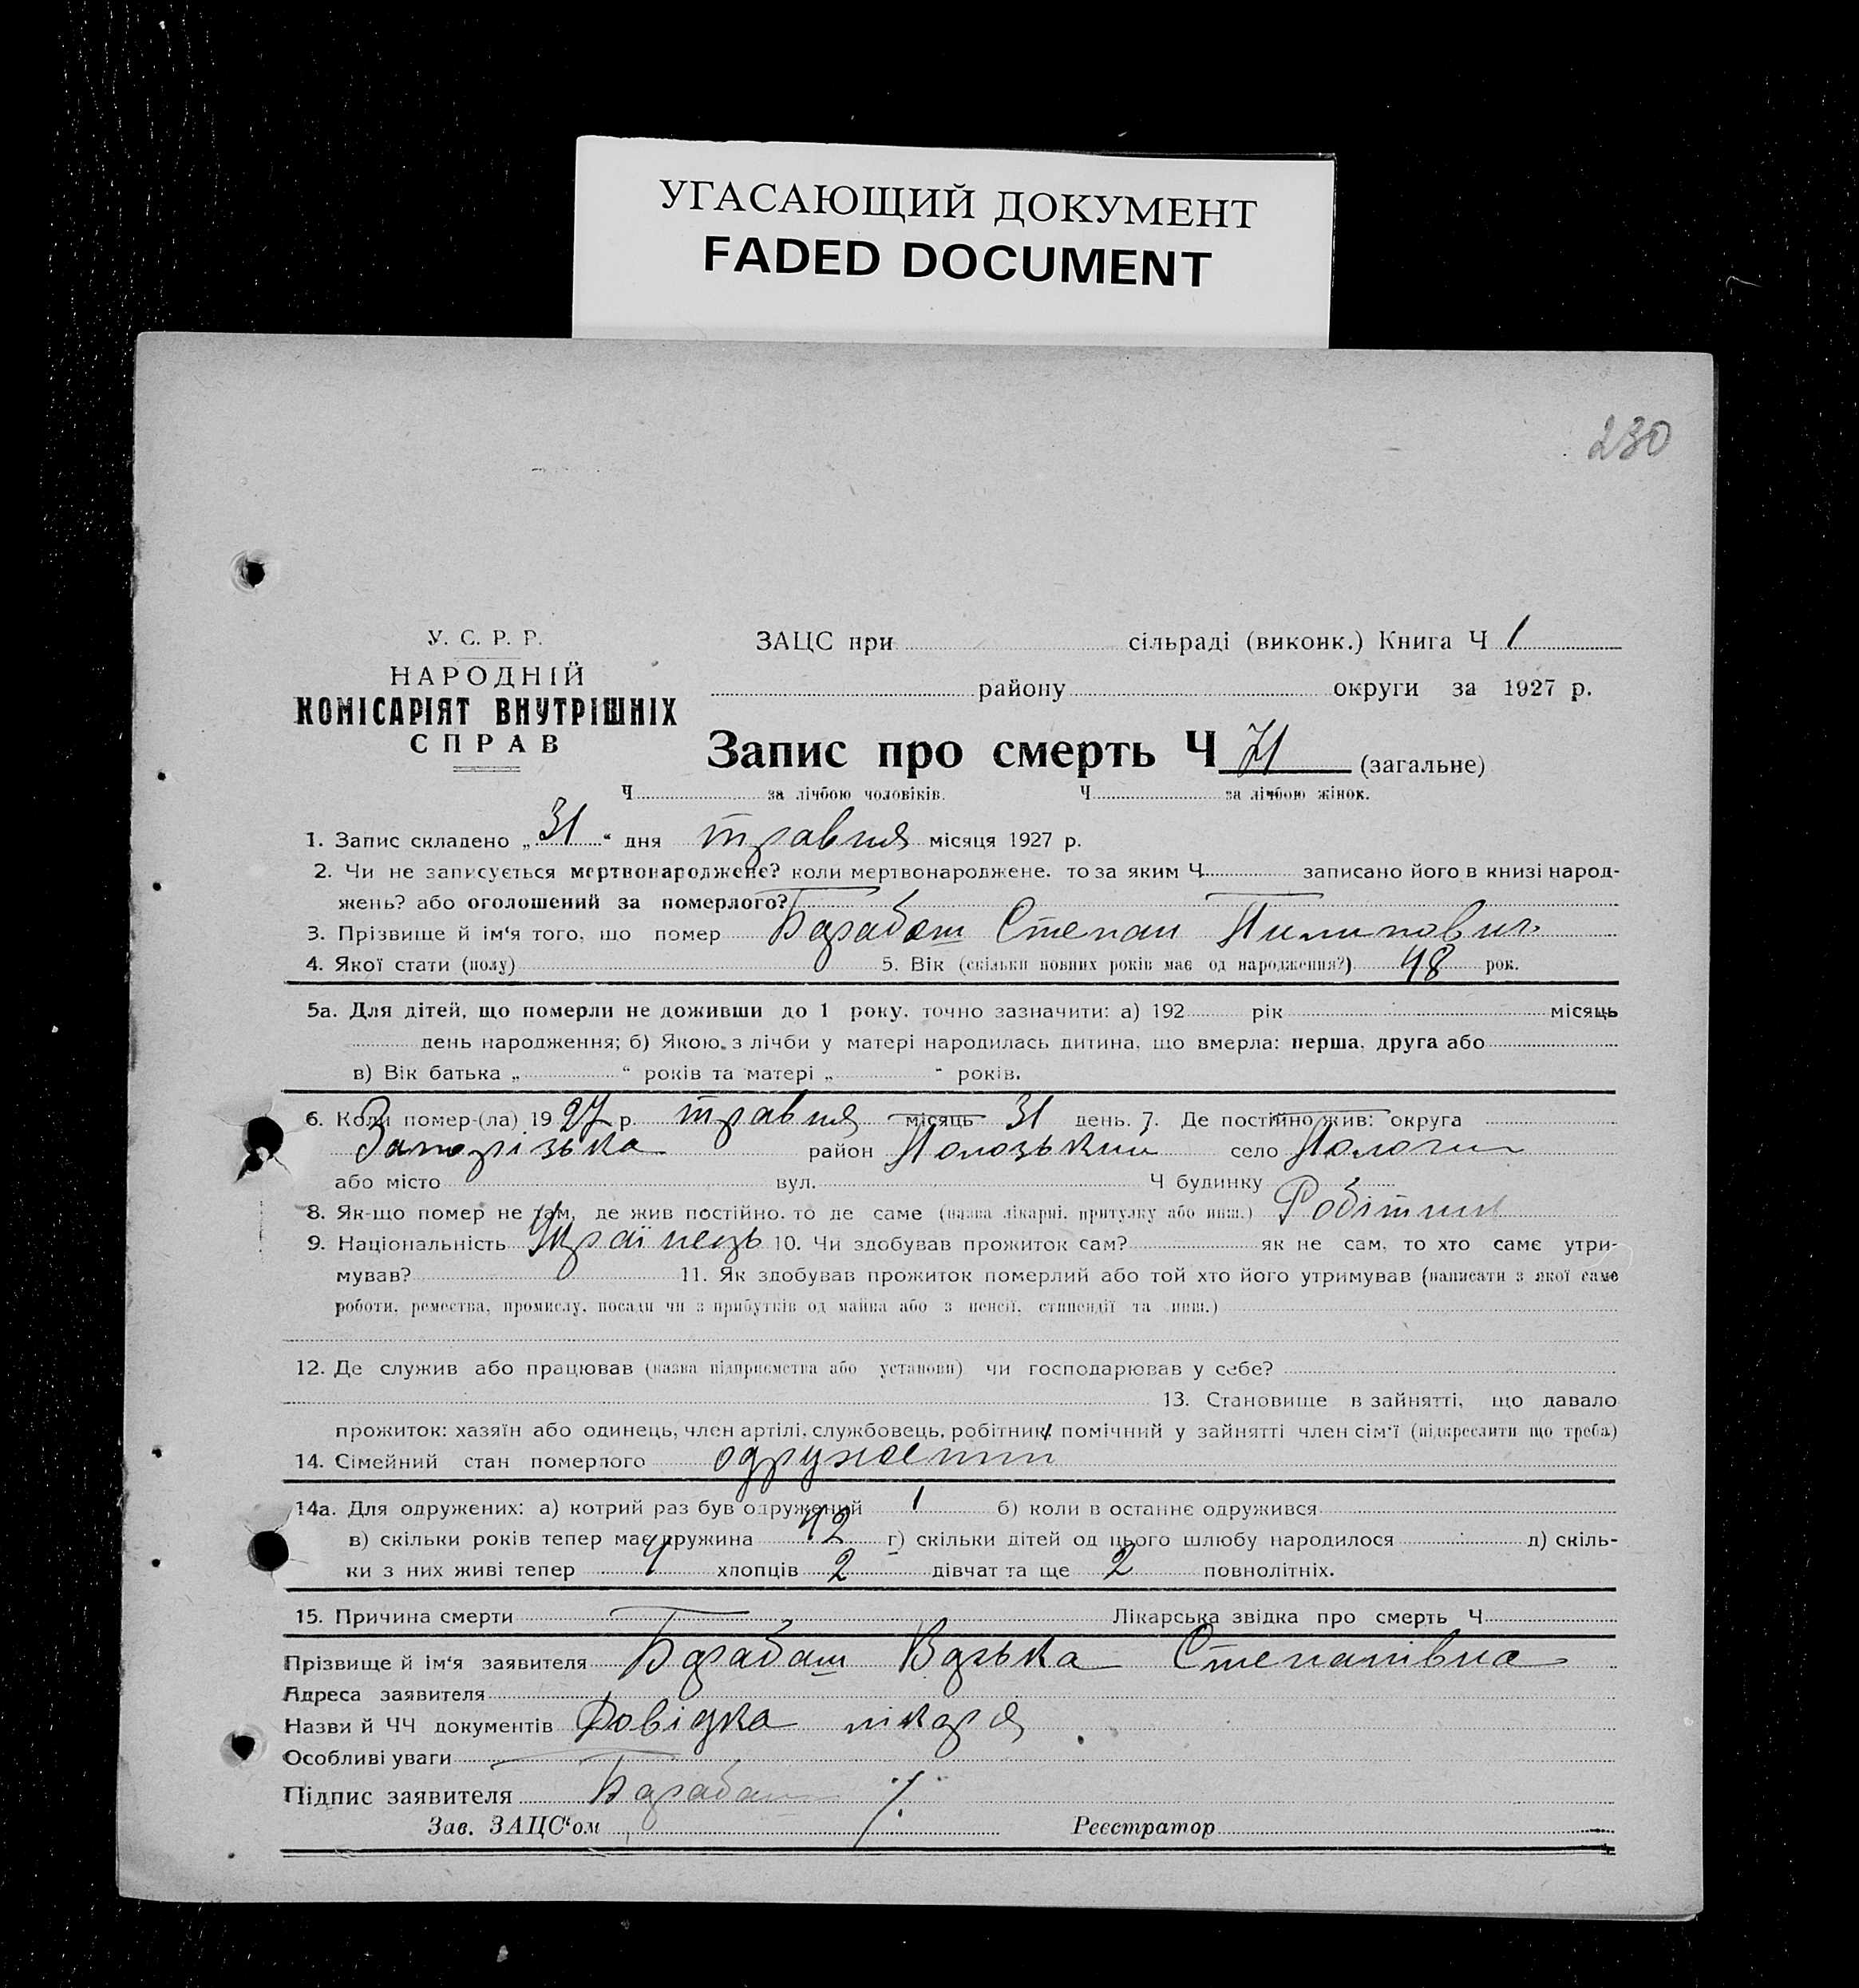 УГАСАЮЩИЙ ДОКУМЕНТ
FADED DOCUMENT
230
У. С. Р. Р.
НАРОДНІЙ
КОМІСАРІЯТ ВНУТРІШНІХ
СПРАВ
ЗАЦС при сільраді (виконк.) Книга Ч 1
району округи за 1927 р.
Запис про смерть Ч 71 (загальне)
Ч за лічбою чоловіків. Ч за лічбою жінок.
1. Запис складено „ 31 “ дня травня місяця 1927 р.
2. Чи не записується мертвонароджене? коли мертвонароджене. то за яким Ч записано його в книзі народ-
жень? або оголошений за померлого?
3. Прізвище й ім‘я того, що помер Барабаш Степан Пилипович
4. Якої стати (полу) 5. Вік (скільки повних років має од народження?) 48 рок.
5а. Для дітей, що померли не доживши до 1 року, точно зазначити: а) 192 рік місяць
день народження; б) Якою з лічби у матері народилась дитина, що вмерла: перша, друга або
в) Вік батька „ “ років та матері „ “ років.
6. Коли помер-(ла) 1927 р. травня місяць 31 день. 7. Де постійно жив: округа
Запорізька район Пологський село Пологи
або місто вул. Ч будинку
8. Як-що помер не там, де жив постійно, то де саме (назва лікарні, притулку або инш.) Робітник
9. Національність Українець 10. Чи здобував прожиток сам? як не сам, то хто саме утри-
мував? 11. Як здобував прожиток померлий або той хто його утримував (написати з якої саме
роботи, ремества, промислу, посади чи з прибутків од майна або з пенсії, стипендії та инш.)
12. Де служив або працював (назва підприємства або установи) чи господарював у себе?
13. Становище в зайнятті, що давало
прожиток: хазяїн або одинець, член артілі, службовець, робітник, помічний у зайнятті член сім‘ї (підкреслити що треба)
14. Сімейний стан померлого одружений
14а. Для одружених: а) котрий раз був одружений 1 б) коли в останнє одружився
в) скільки років тепер має дружина 42 г) скільки дітей од цього шлюбу народилося д) скіль-
ки з них живі тепер 4 хлопців 2 дівчат та ще 2 повнолітніх.
15. Причина смерти Лікарська звідка про смерть Ч
Прізвище й ім‘я заявителя Барабаш Варька Степанівна
Адреса заявителя
Назви й ЧЧ документів Довідка лікаря
Особливі уваги
Підпис заявителя Барабаш
Зав. ЗАЦС‘ом Реєстратор